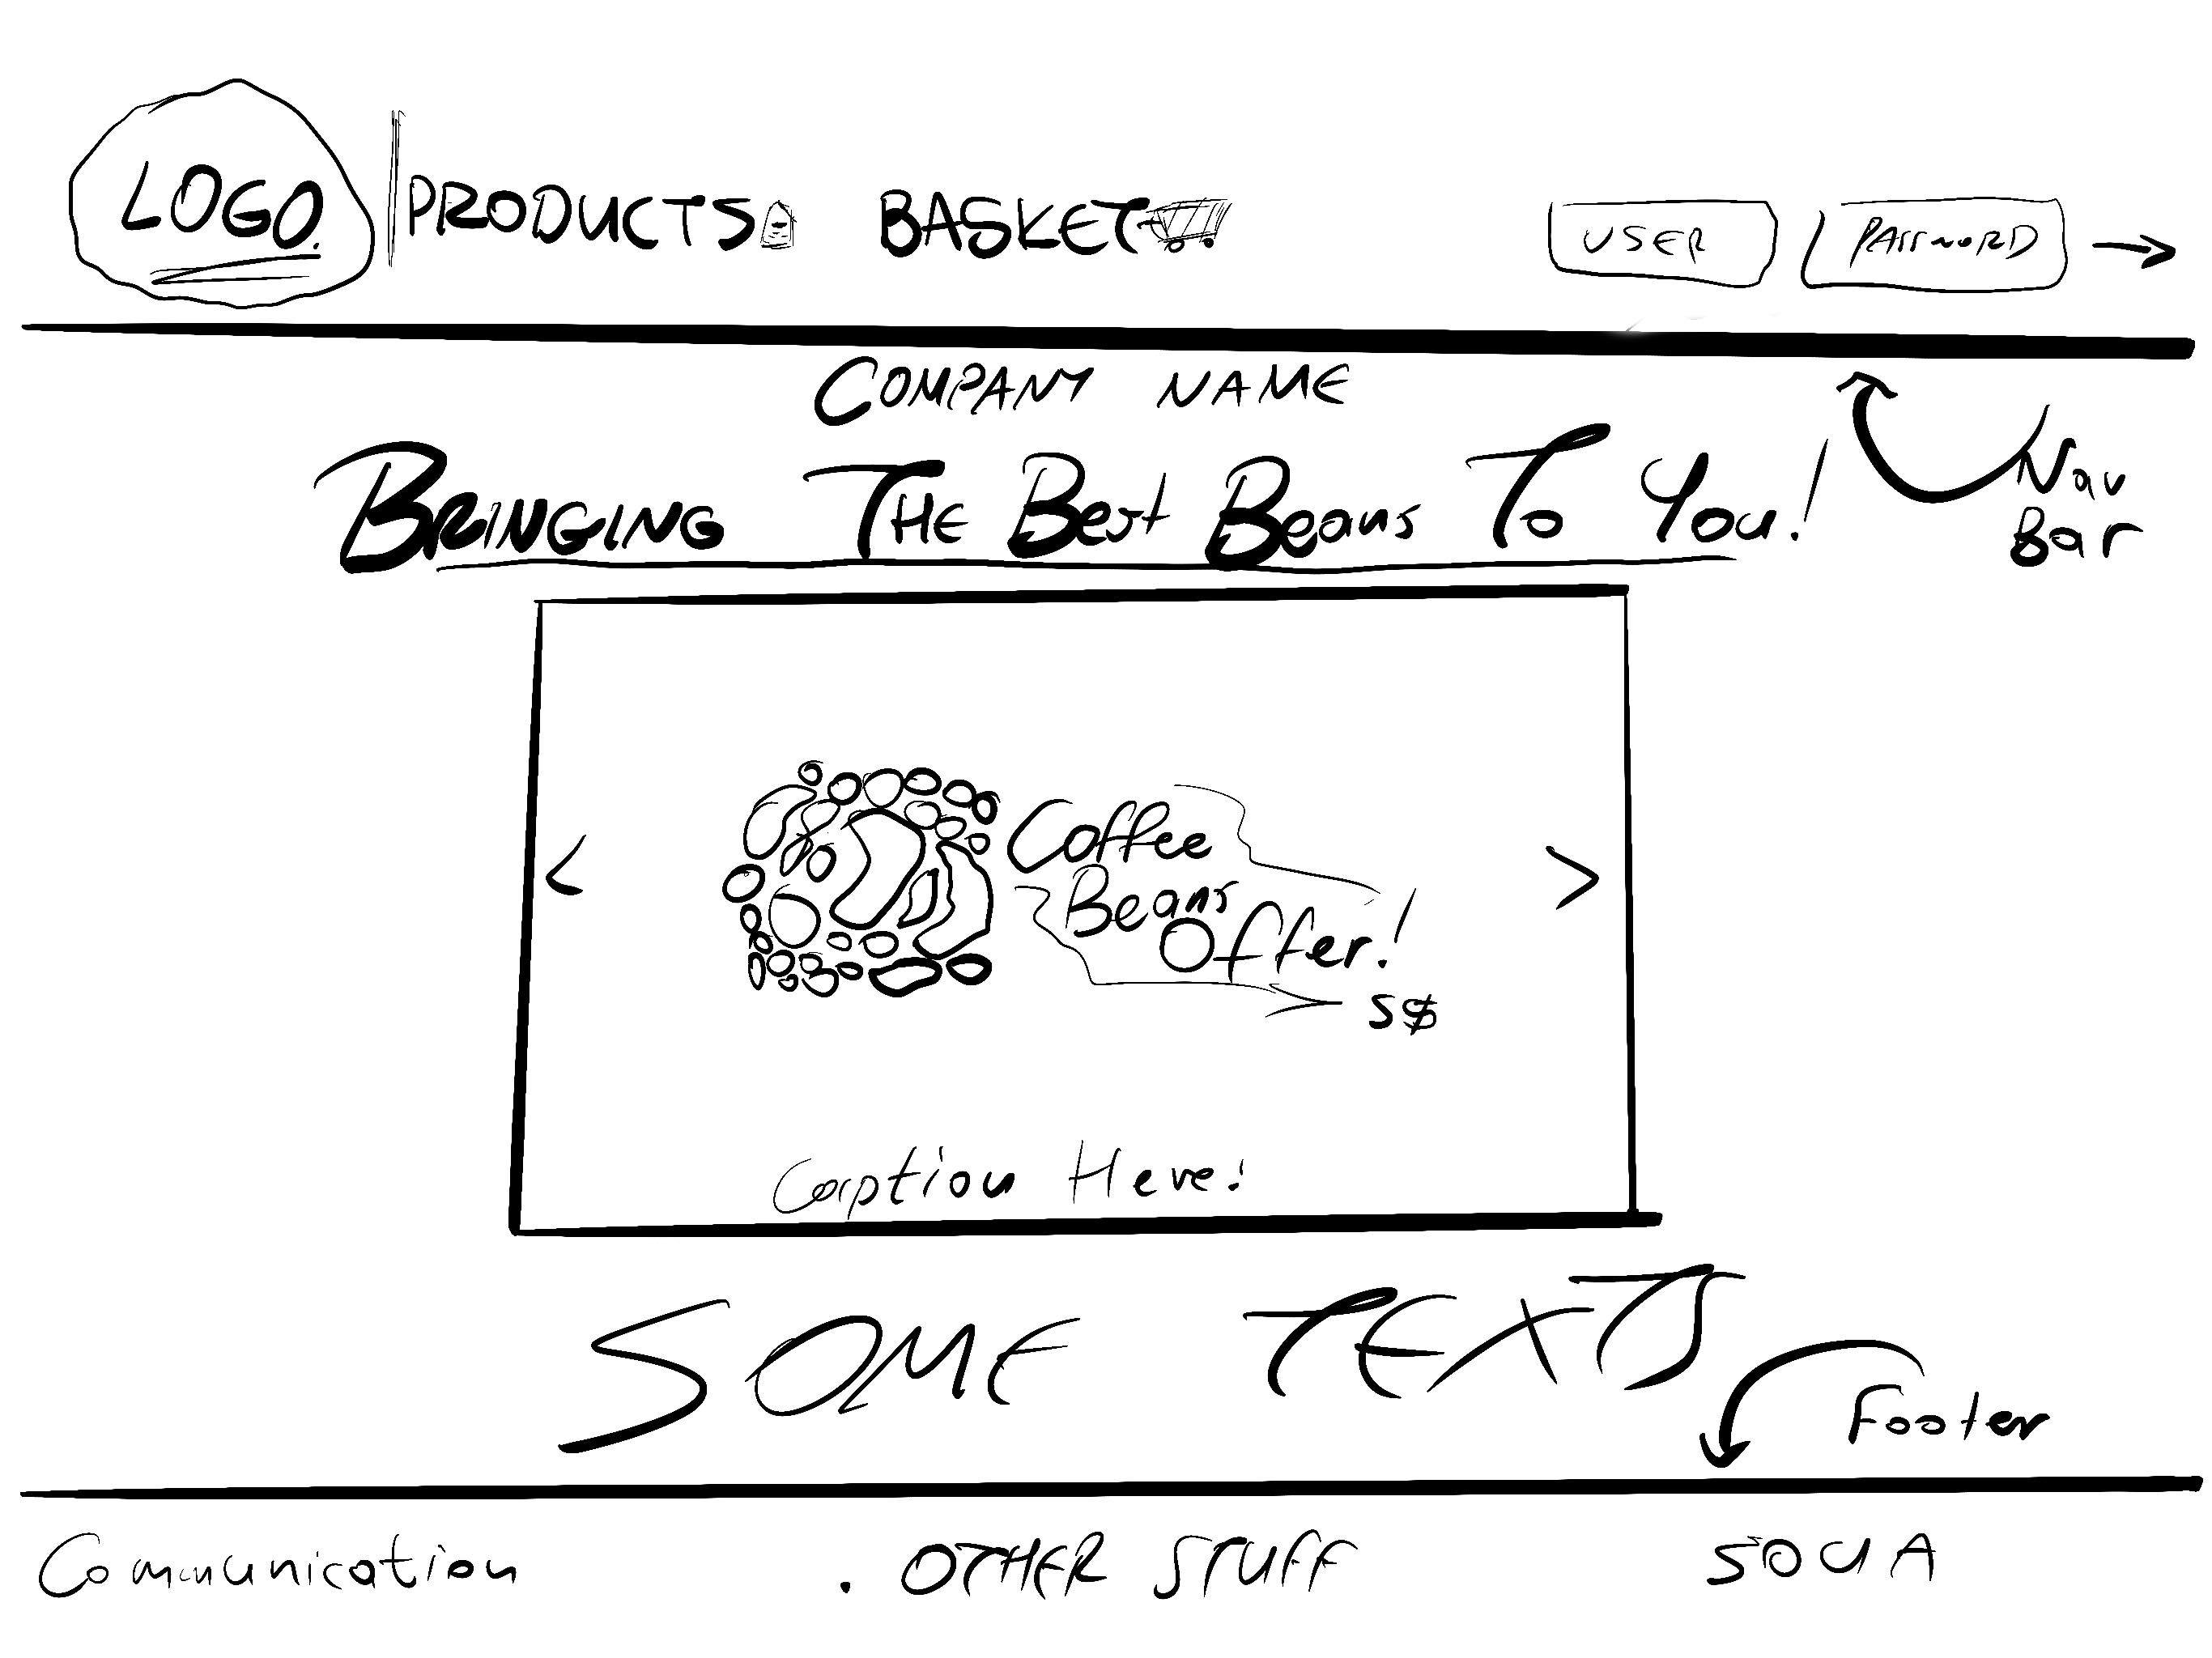 LOGO.
PRODUCTS
BASKET
USER
PASSWORD
COMPANY NAME
BRINGING THE Best Beans To You!
Nav
Bar
Coffee
Beans
Offer!
5$
Caption Here!
SOME TEXTS
Footer
Communication
. OTHER STUFF